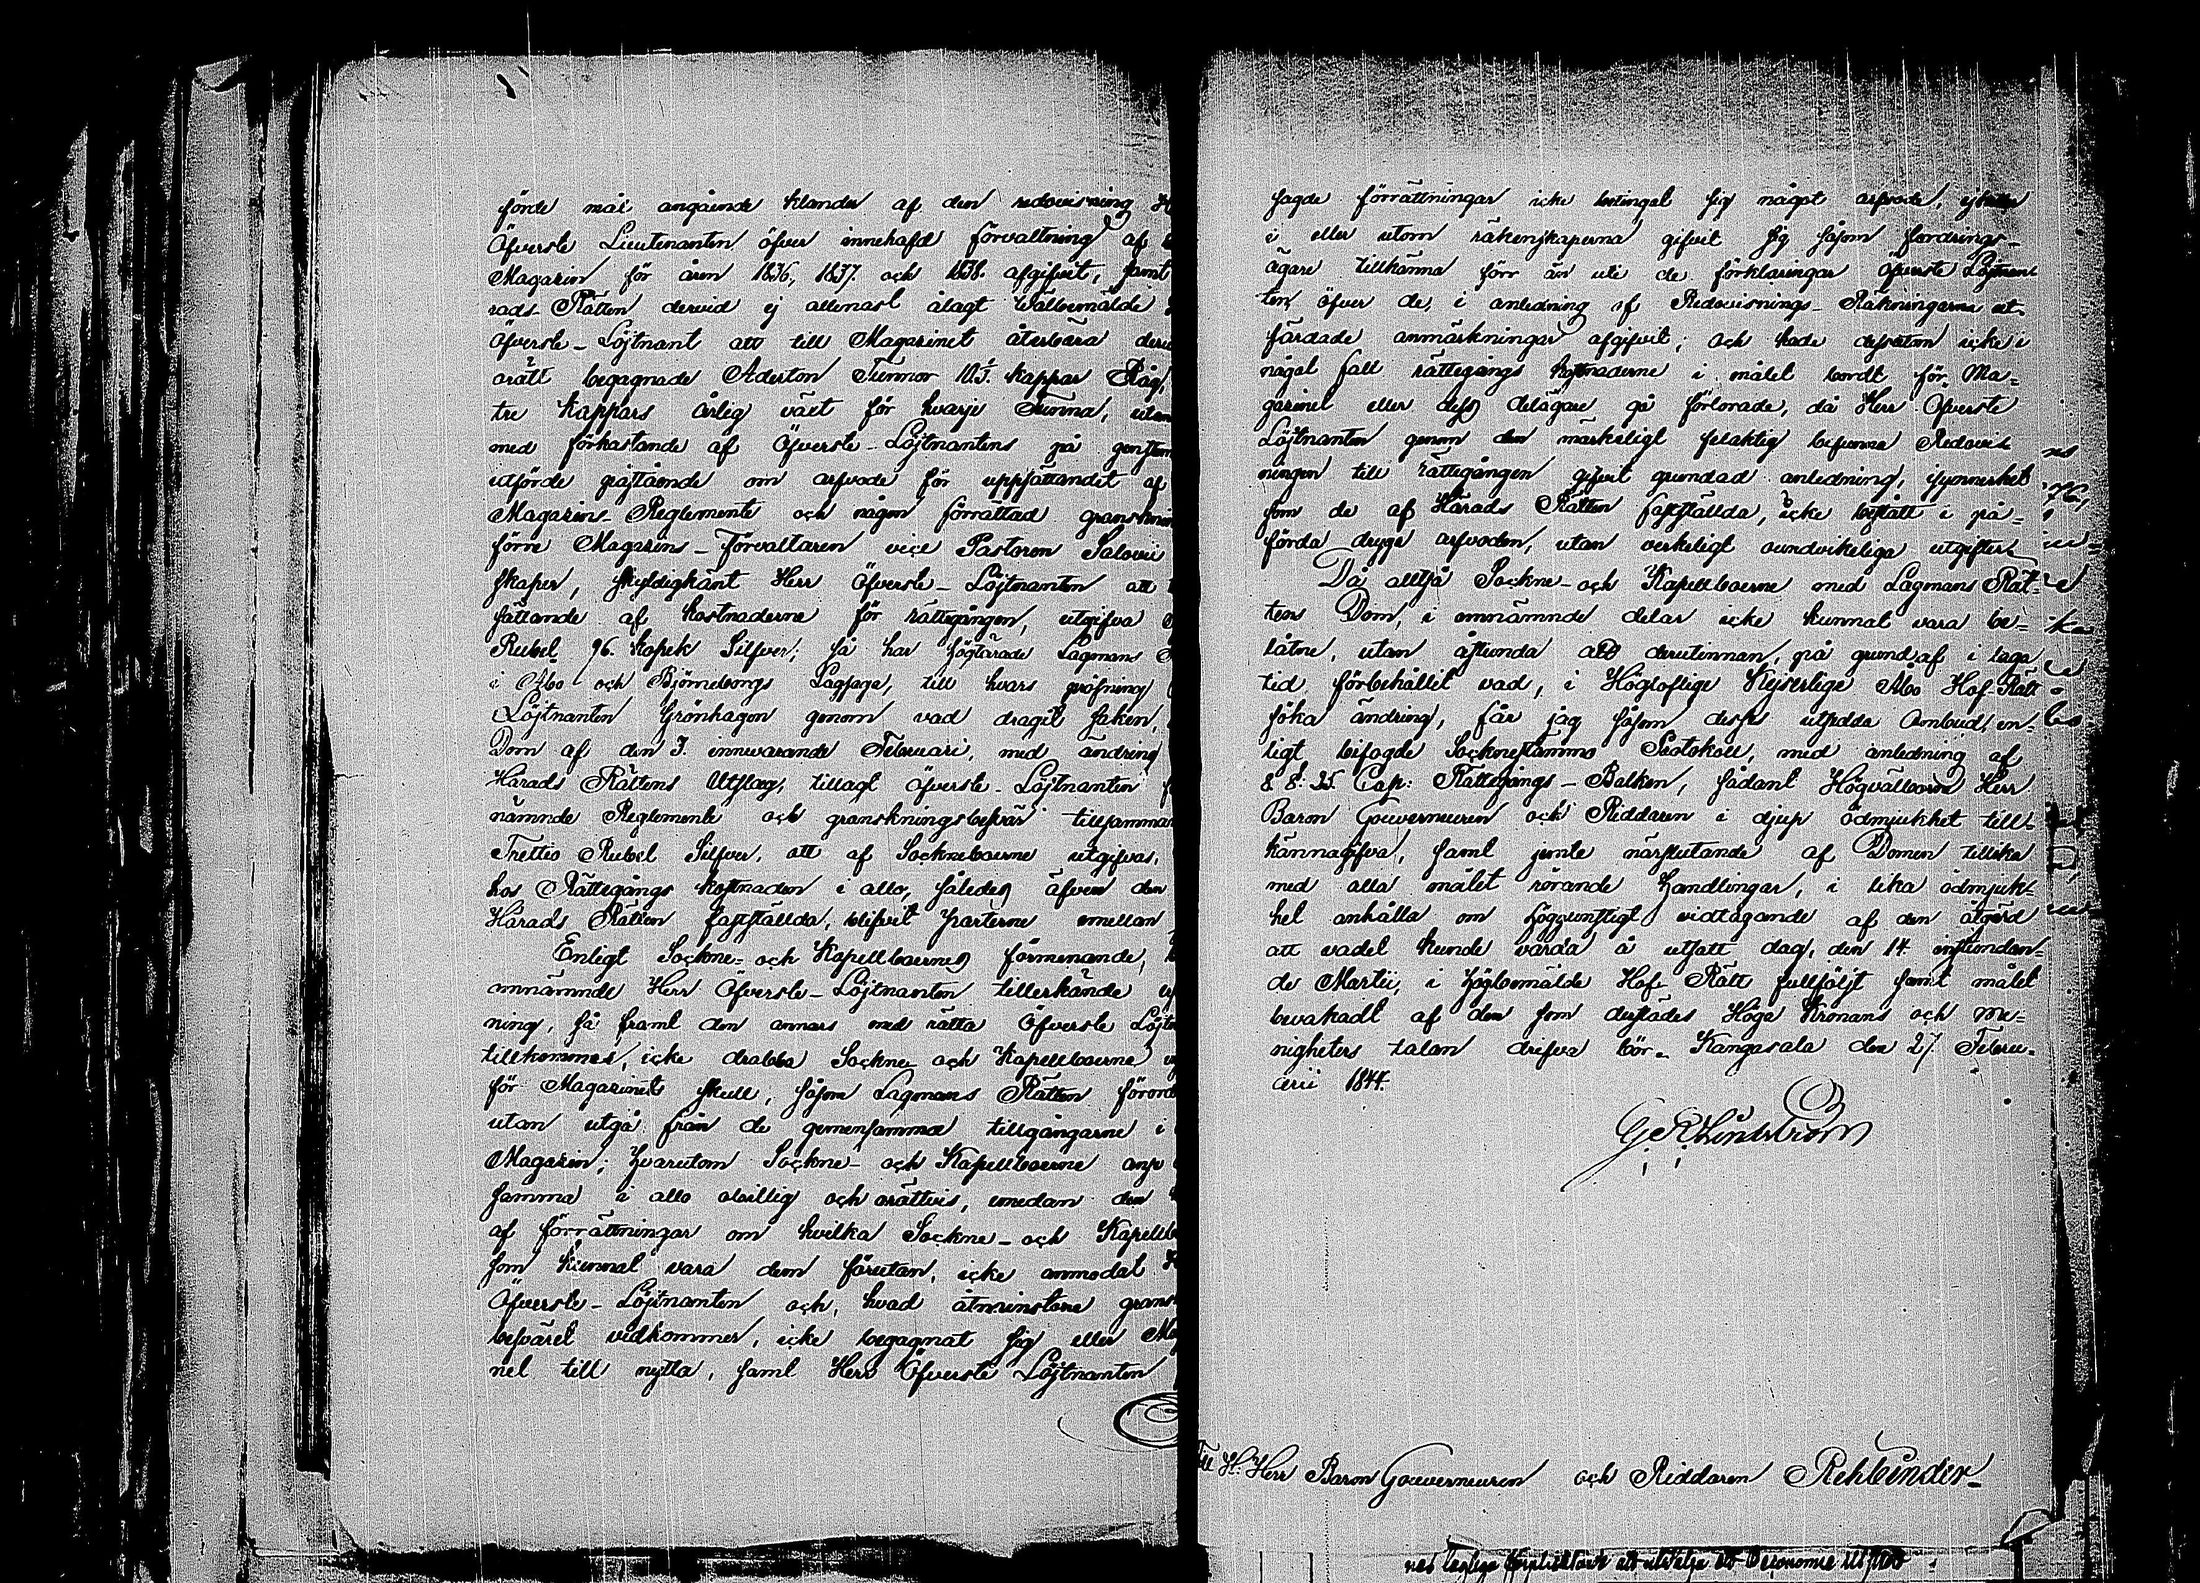 förde mål angående klander af den redovisning
Öfverste Lieutenanten öfver innehafd förvaltning af
Magazin för åren 1836, 1837 och 1838. afgifvit, samt
rads-Rätten dervid ej allenast ålagt Wälbemälde
Öfverste-Löjtnant att till Magazinet återbära
orätt begagnade Aderton Tunnor 10 kappar Råg,
tre kappars årlig växt för hvarje Tunna,
med förkastande af Öfverste-Löjtnantens på
idförde påstående om arfvode för uppsättandet af
Magazins-Reglemente och någon förrättad
förre Magazins-Förvaltaren vice Pastoren Salovii
skaper, skyldigkänt Herr Öfverste-Löjtnanten att
sättande af kostnaderne för rättegången, utgifva
Rubel 96. Kopek Silfver; så har Högtärade Lagmans
i Åbo och Björneborgs Lagsaga, till hvars pröfning
Löjtnanten Grönhagen genom vad dragit saken,
Dom af den 3. innevarande Februari, med ändring
Härads Rättens Utslag, tillagt Öfverste-Löjtnanten
nämnde Reglemente och granskningsbesvär
Trettio Rubel Silfver, att af Socknebоerne utgifvas,
hos Rättegångs kostnaden i allo, således äfven den
Härads Rätten fastställda, blifvit parterne emellan
Enligt Sockne- och Kapellboernes förmenande,
omnämnde Herr Öfverste-Löjtnanten tillerkände
ning, så framt den annars med rätta Öfverste
tillkommer, icke drabba Sockne och Kapellboerne
för Magazinets skull, såsom Lagmans Rätten
utan utgå från de gemensamma tillgångarne i
Magazin; hvarutom Sockne- och Kapellboerne anse
samma i allo obillig och orättvis, emedan den
af förrättningar om hvilka Sockne- och
som kunnat vara dem förutan, icke anmodat
Öfverste-Löjtnanten och, hvad åtminstone
besväret vidkommer, icke begagnat sig eller
net till nytta, samt Herr Öfverste Löjtnanten
sagde förrättningar icke betingat sig något arfvode,
i eller utom räkenskaperna gifvit sig såsom fordrings-
ägare tillkänna förr än uti de förklaringar Öfverste Löjtnan
ten öfver de, i anledning af Redovisnings-Räkningarne ut-
färdade anmärkningar afgifvit; och hade dessutom icke i
något fall rättegångs kostnaderne i målet bordt för Ma-
gazinet eller dess delägare gå förlorade, då Herr Öfverste
Löjtnanten genom den märkeligt felaktig befunna Redovis
ningen till rättegången gifvit grundad anledning, isynnerhet
som de af Härads Rätten fastställda, icke bestått i på-
förda dryga arfvoden, utan verkeligt oundvikeliga utgifter.
Då alltså Sockne- och Kapellboerne med Lagmans Rät-
tens Dom, i omnämnde delar icke kunnat vara be-
låtne, utan åstunda att derutinnan, på grund af i laga
tid förbehållit vad, i Höglofliga Kejserliga Åbo Hof-Rätt
söka ändring, får jag såsom dertill utsedda Ombud, en-
ligt bifogde Socknestämmo Protokoll, med anledning af
8 §. 25. Cap: Rättegångs-Balken, sådant Högvälborne Herr
Baron Gouverneuren och Riddaren i djup ödmjukhet till-
kännagifva, samt jemte närslutande af Domen tillika
med alla målet rörande Handlingar, i lika ödmjuk-
het anhålla om höggunstigt vidtagande af den åtgerd
att vadet kunde varda å utsatt dag, den 14. instundan-
de Martii, i Högbemälde Hof-Rätt fullföljt samt målet
bevakadt af den som derstädes Höga Kronans och me-
nigheters talan drifva bör. Kangasala den 27 Febru-
arii 1844.
G Lindström
Till H. Herr Baron Gouverneuren och Riddaren Rehbinder